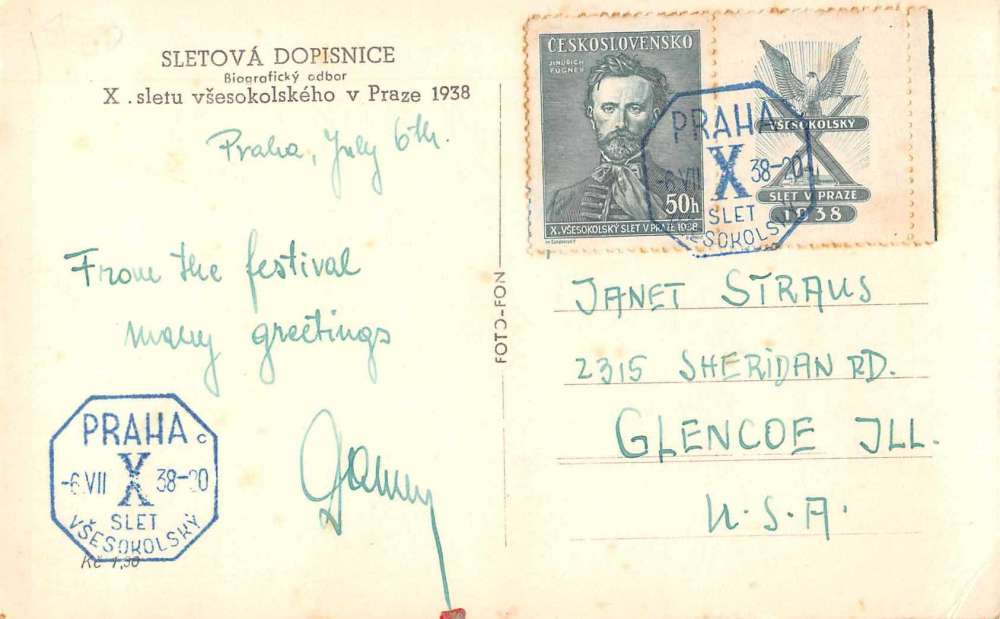 SLETOVÁ DOPISNICE
Biografický odbor
X. sletu všesokolského v Praze 1938
Praha, July 6th.
From the festival
many greetings
PRAHA c
-6.VII X 38-20
SLET
VŠESOKOLSKÝ
Kč 1,30
FOTO-FON
ČESKOSLOVENSKO
JINDŘICH
FÜGNER
50h
X. VŠESOKOLSKÝ SLET V PRAZE 1938
PRAHA
-6.VII X 38-20
SLET
VŠESOKOLSKÝ
VŠESOKOLSKÝ
X
SLET V PRAZE
1938
JANET STRAUS
2315 SHERIDAN RD.
GLENCOE JLL.
U.S.A.